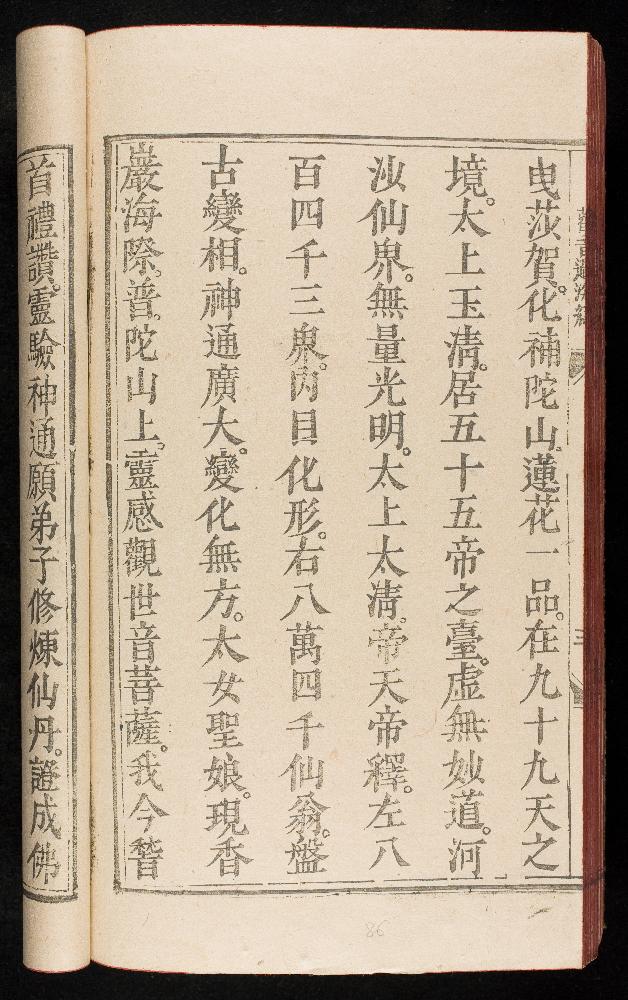 曳莎賀。化補陀山。蓮花一品。在九十九天之
境。太上玉清。居五十五帝之臺。虛無妙道。河
汝仙界。無量光明。太上太清。帝天帝釋。左八
百四千三界。丙目化形。右八萬四千仙翁。盤
古變相。神通廣大。變化無方。太女聖娘。現香
嚴海際。普陀山上。靈感觀世音菩薩。我今誓
首禮讚。靈驗神通願弟子修煉仙丹。證成佛
三
86